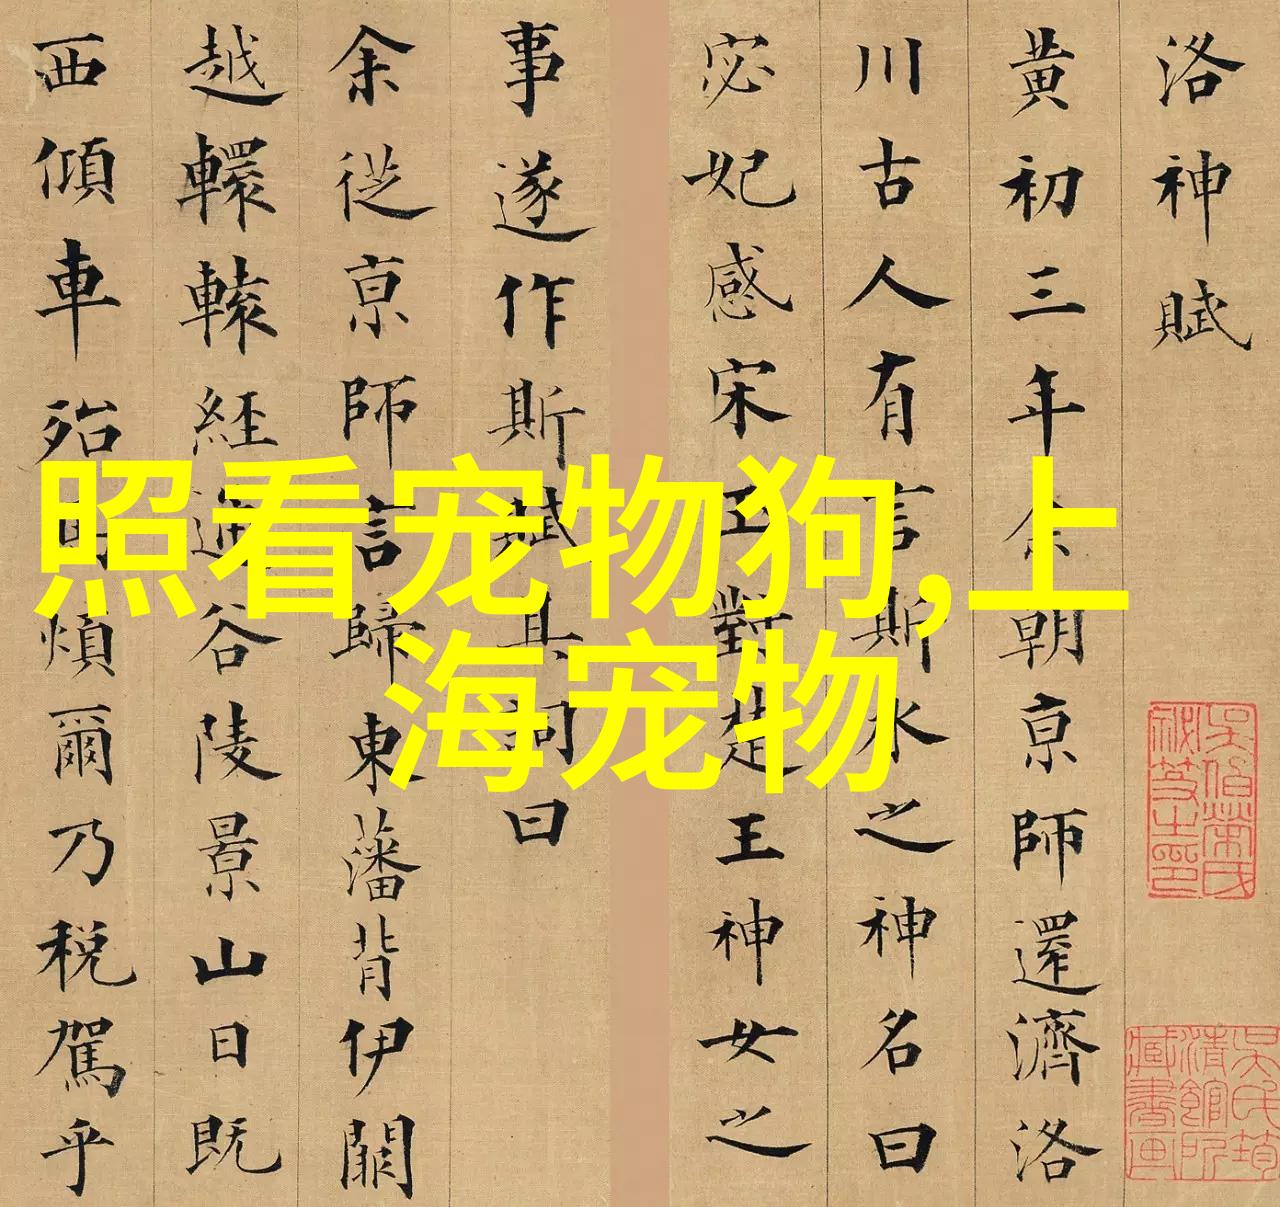 洛神賦
黄初三年余朝京師還濟洛
川古人有言斯水之神名曰
宓妃感宋玉對楚王神女之
事遂作斯賦其詞曰
余從京師言歸東藩背伊闕
越轘轅經通谷陵景山日既
西傾車殆馬煩爾乃稅駕乎
照看宠物狗,上
海宠物